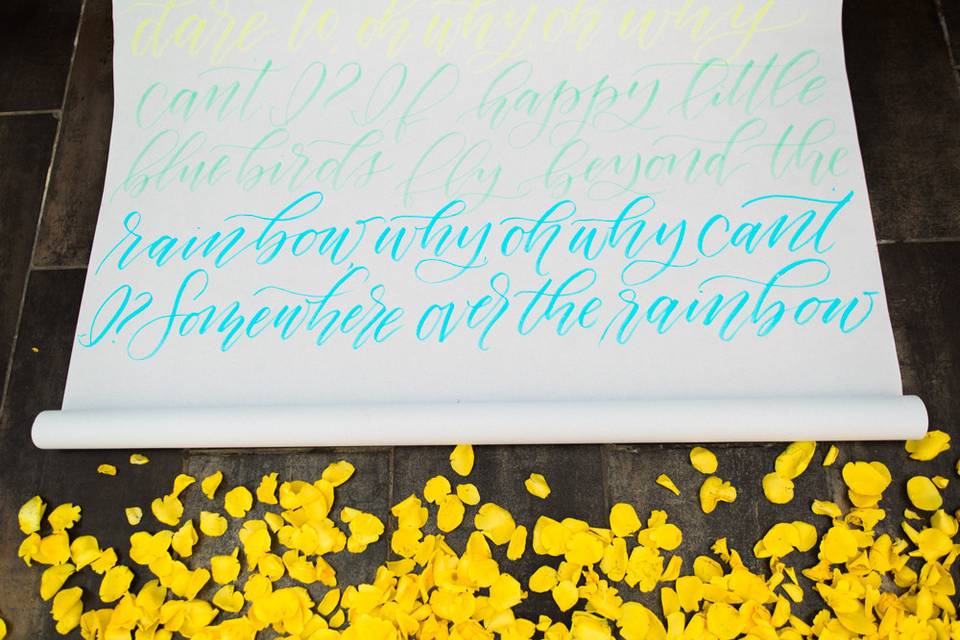 dare to, oh why oh why
cant I? If happy little
bluebirds fly beyond the
rainbow, why, oh why cant
I? Somewhere over the rainbow